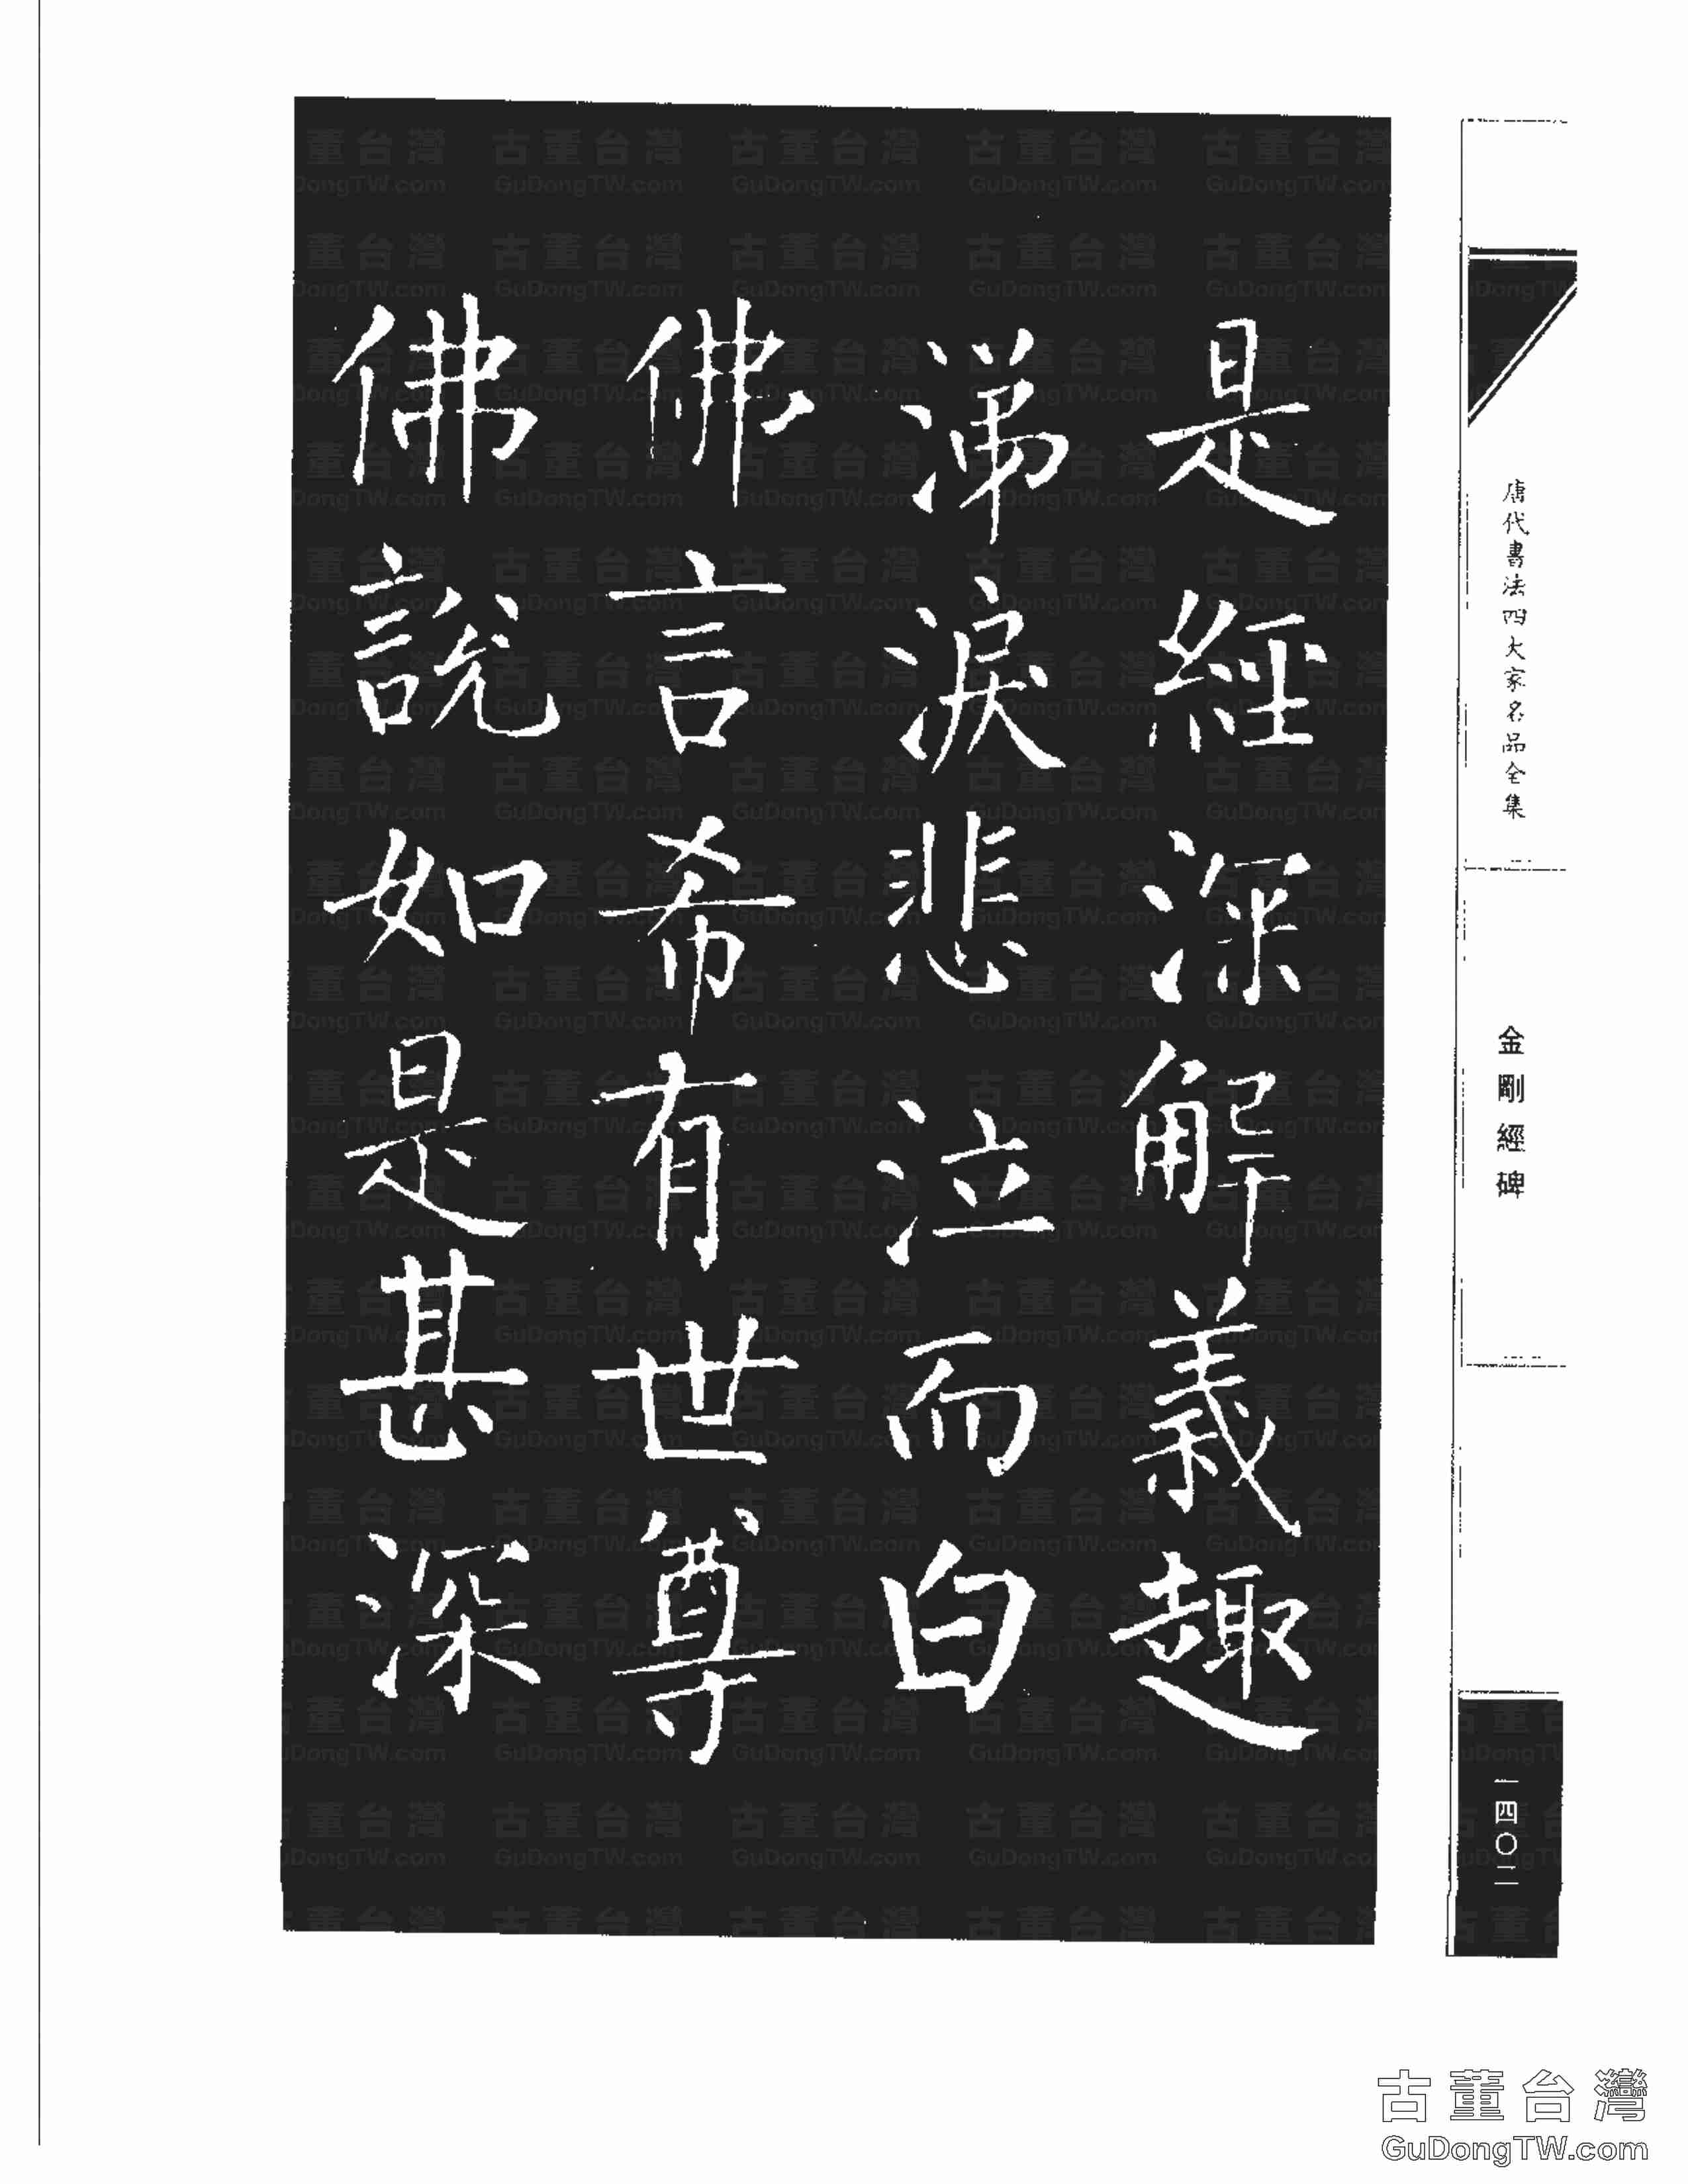 是經深解義趣
涕淚悲泣而白
佛言希有世尊
佛說如是甚深
唐代書法四大家名品全集
金剛經碑
一四〇二
古董台灣
GuDongTW.com